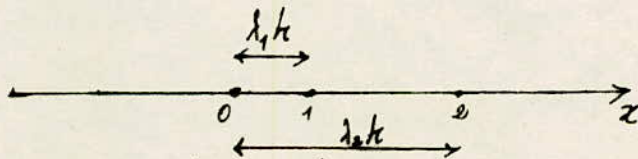 λ₁h
0 1 2 x
λ₂h